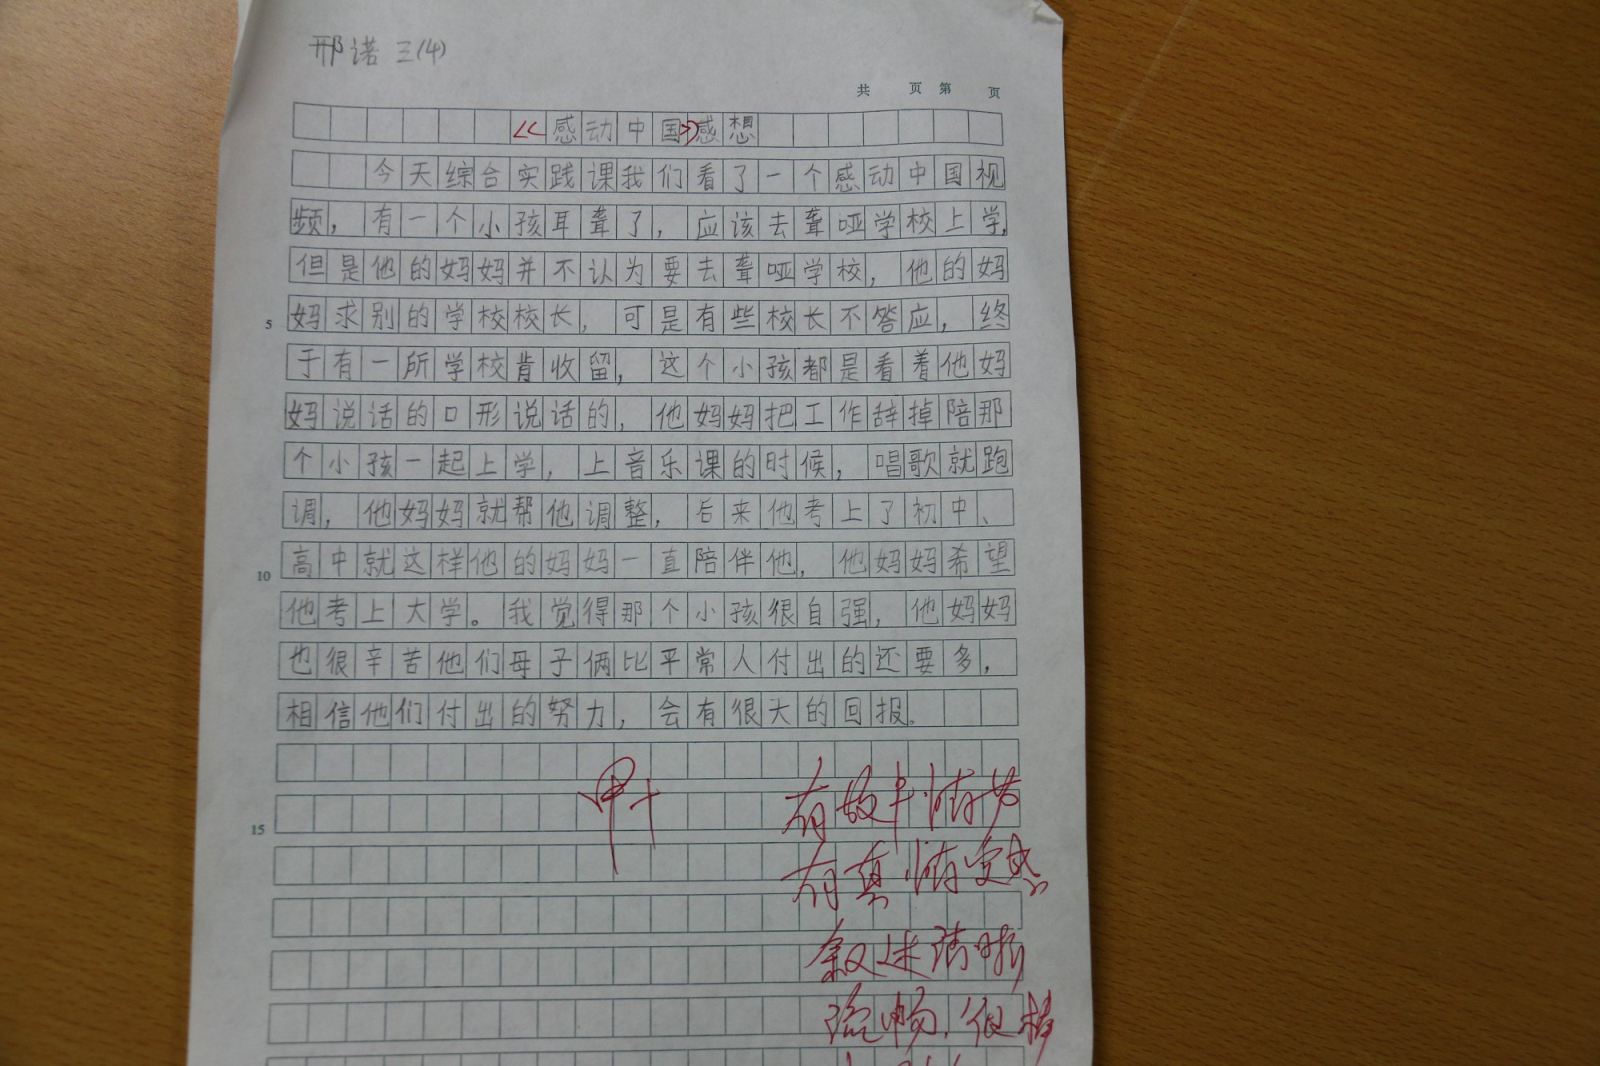 邢诺 三(4)
共 页 第 页
《感动中国》感想
今天综合实践课我们看了一个感动中国视
频，有一个小孩耳聋了，应该去聋哑学校上学，
但是他的妈妈并不认为要去聋哑学校，他的妈
5
妈求别的学校校长，可是有些校长不答应，终
于有一所学校肯收留，这个小孩都是看着他妈
妈说话的口形说话的，他妈妈把工作辞掉陪那
个小孩一起上学，上音乐课的时候，唱歌就跑
调，他妈妈就帮他调整，后来他考上了初中、
10
高中就这样他的妈妈一直陪伴他，他妈妈希望
他考上大学。我觉得那个小孩很自强，他妈妈
也很辛苦他们母子俩比平常人付出的还要多，
相信他们付出的努力，会有很大的回报。
甲+
15
有故事情节
有真情实感
叙述清晰
流畅，很棒